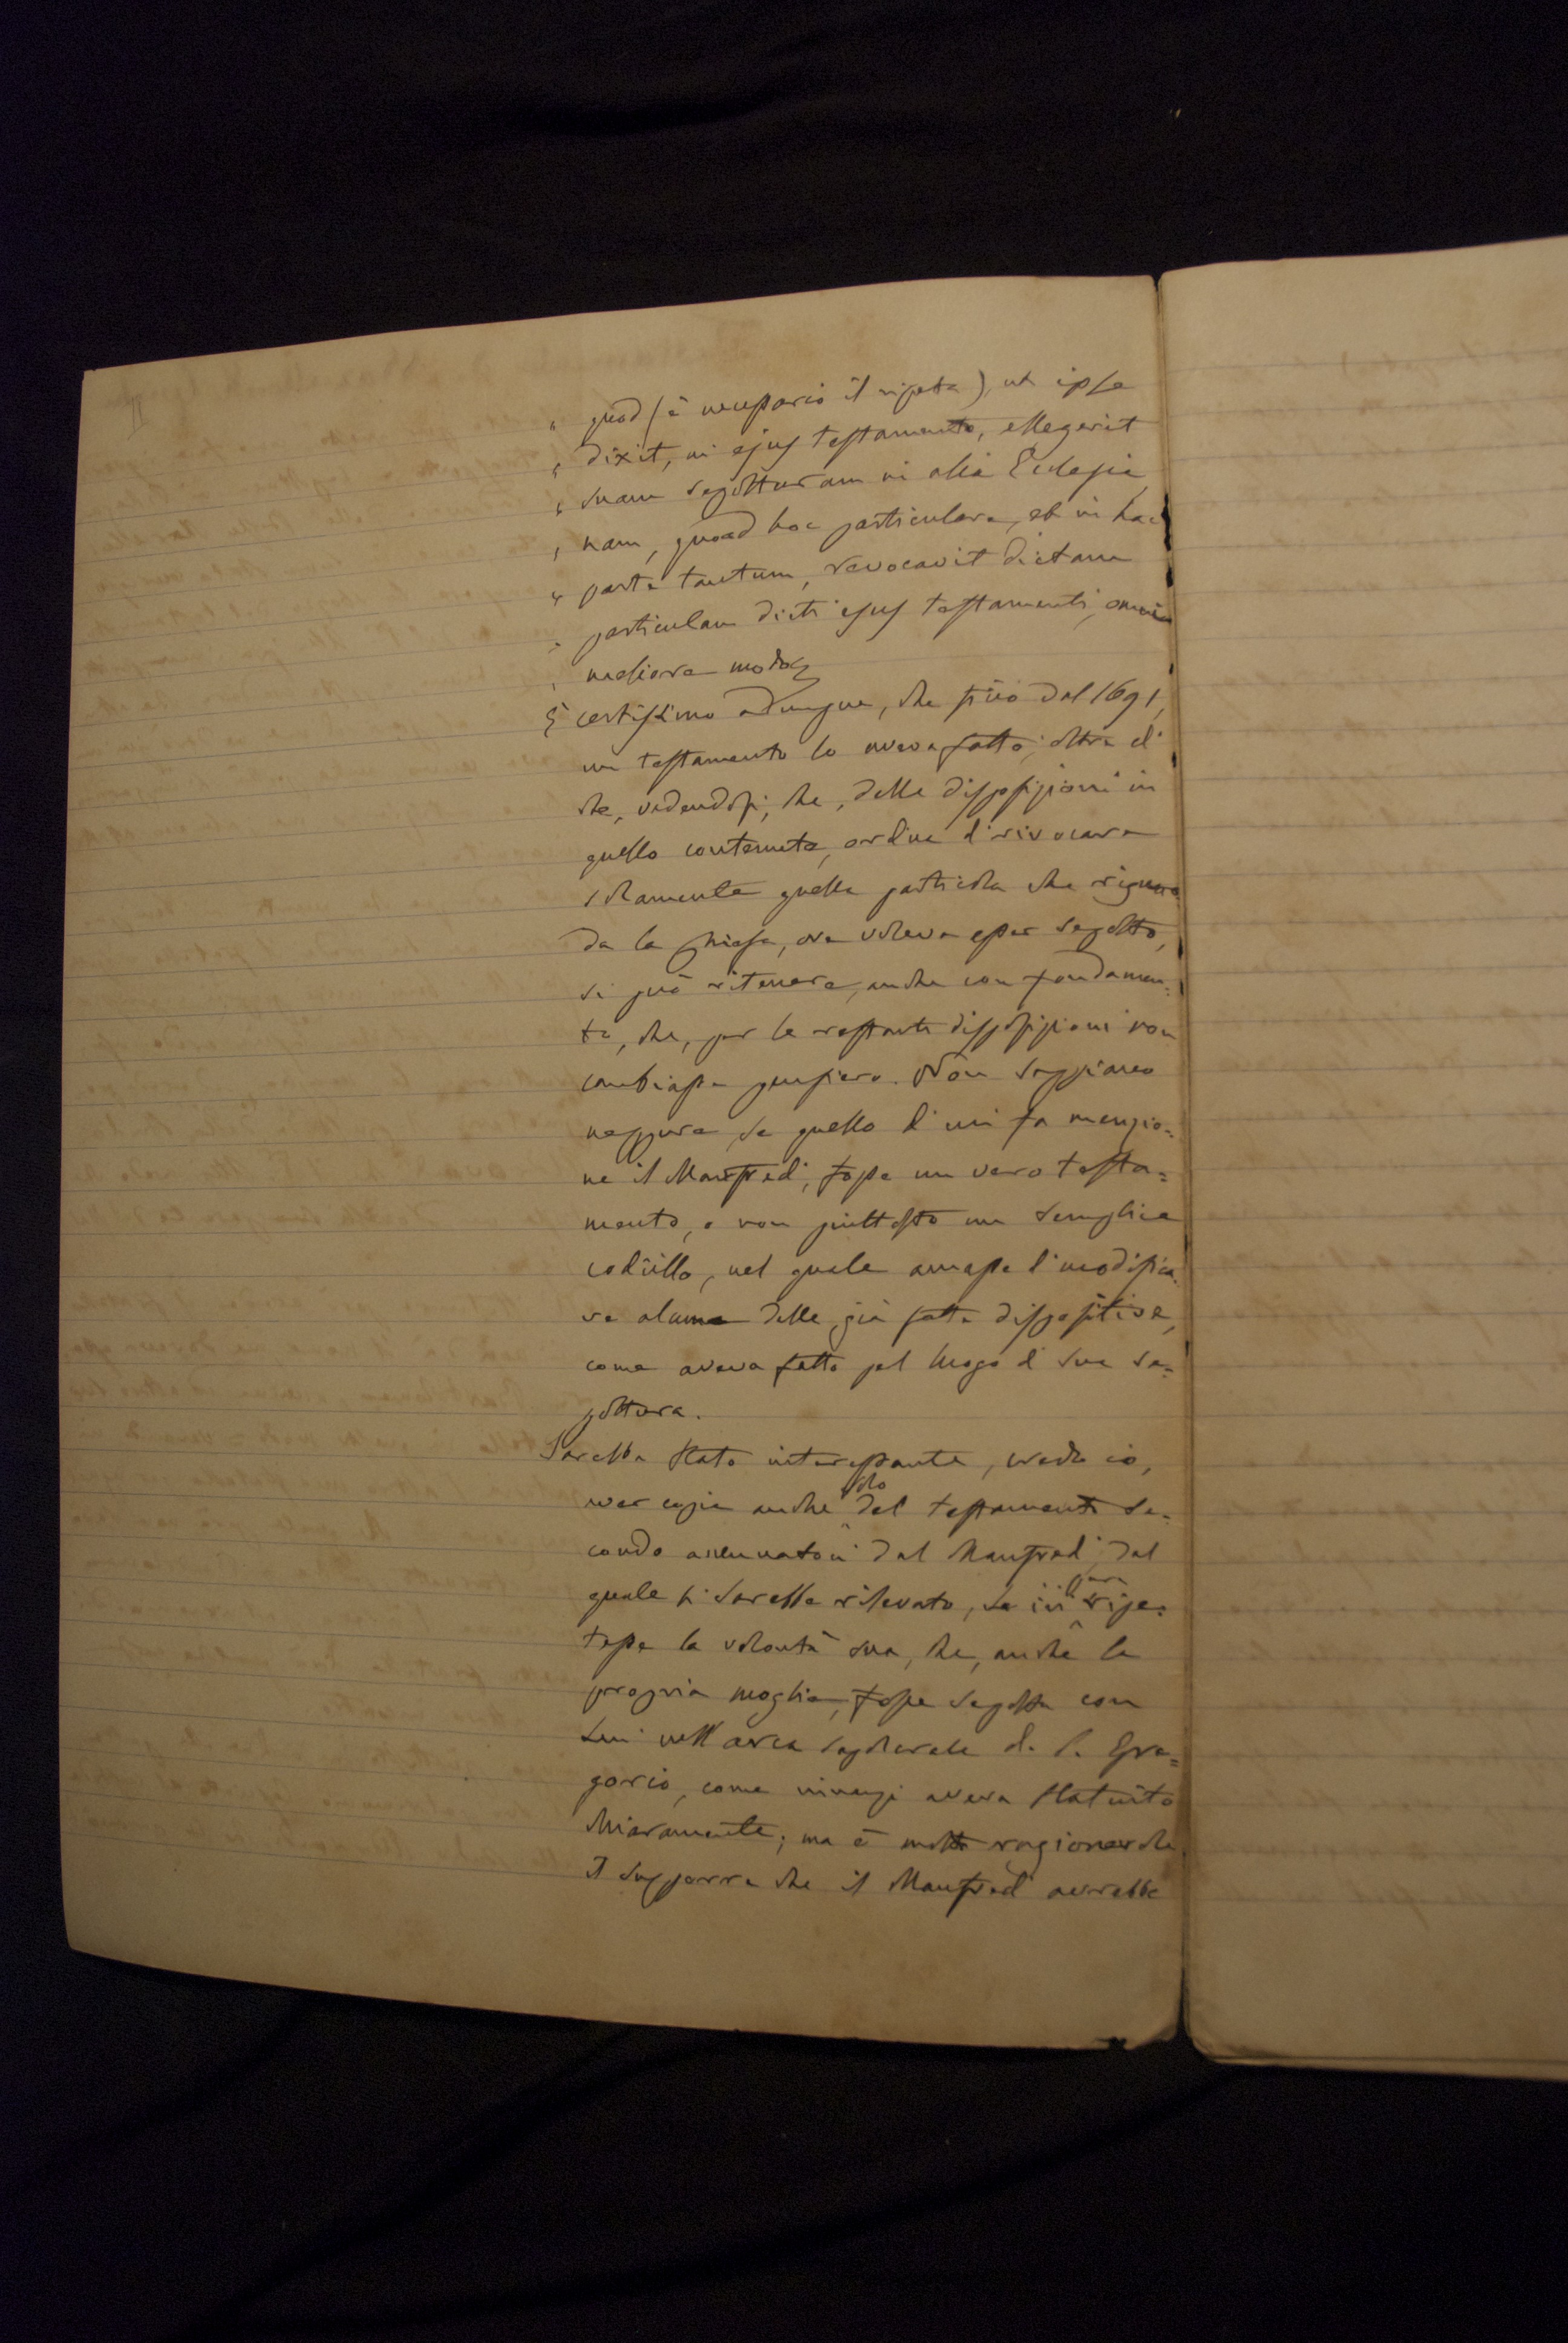 " quod (è necessario il ripeta), ut ipse
" dixit, in ejus testamento, ellegerit
" suam sepolturam in alia Eclesia,
" nam, quoad hoc particulare, et in hac
" parte tantum, revocavit dictam
" particulam dicti ejus testamenti, omni
" meliore modo,
È certissimo adunque, che fino dal 1691,
un testamento lo aveva fatto; oltre di
che, vedendosi, che, delle disposizioni in
quello contenute, ordina di rivocare
solamente quella particola che riguar
da la Chiesa, ove voleva esser sepolto,
si può ritenere, anche con fondamen=
to, che, per le restanti disposizioni non
cambiasse pensiero. Non sappiamo
neppure, se quello di cui fa menzio=
ne il Manfredi, fosse un vero testa=
mento, o non piuttosto un semplice
codicillo, nel quale amasse di modifica
re alcuna delle già fatte dispositive,
come aveva fatto pel luogo di sua se=
poltura.
Sarebbe stato interessante, credo io,
aver copia anche del testamento se=
condo accennatoci dal Manfredi, dal
quale si sarebbe rilevato, se ivi pure ripe=
tesse la volontà sua, che, anche la
propria moglie, fosse sepolta con
Lui nell'arca sepolcrale di S. Gre=
gorio, come innanzi aveva statuito
chiaramente; ma è molto ragionevole
il supporre che il Manfredi avrebbe